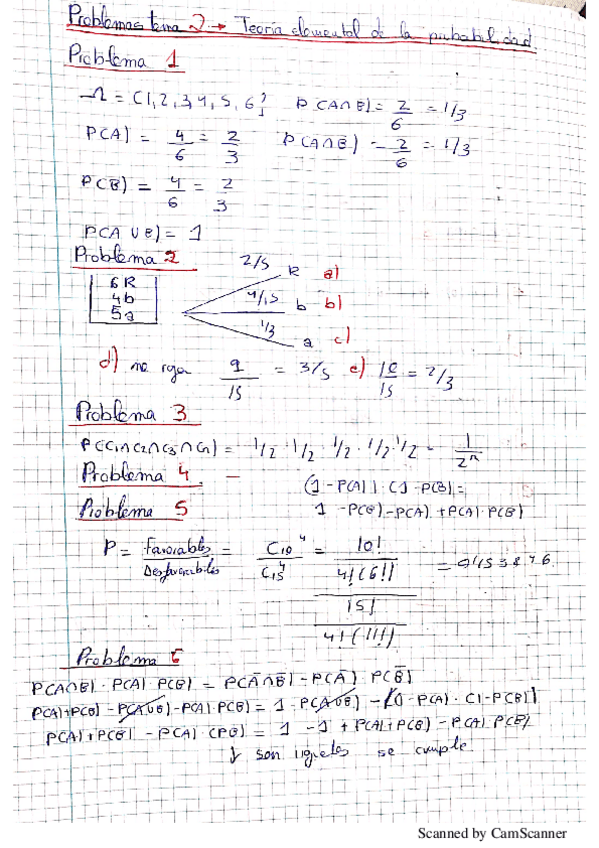 Problemas tema 2 → Teoría elemental de la probabilidad
Problema 1
Ω = {1, 2, 3, 4, 5, 6} P(A∩B) = 2/6 = 1/3
P(A) = 4/6 = 2/3 P(A∩B̄) = 2/6 = 1/3
P(B) = 4/6 = 2/3
P(A∪B) = 1
Problema 2
6R
4b
5a
2/5 R a)
4/15 b b)
1/3 a c)
d) no roja 9/15 = 3/5 e) 10/15 = 2/3
Problema 3
P(C₁∩C₂∩C₃∩C₄) = 1/2 · 1/2 · 1/2 · 1/2 · 1/2 = 1/2ⁿ
Problema 4. —
(1 - P(A)) · (1 - P(B)) =
Problema 5
1 - P(B) - P(A) + P(A) · P(B)
P = Favorables/Desfavorables = C₁₀⁴/C₁₅⁴ = 10!/4!(6!) / 15!/4!(11!) = 0'153846
Problema 6
P(A∩B) - P(A) P(B) = P(Ā∩B̄) - P(Ā) P(B̄)
P(A)+P(B) - P(A∪B) - P(A) · P(B) = 1 - P(A∪B) - [(1 - P(A)) · (1 - P(B))]
P(A) + P(B) - P(A) · P(B) = 1 - 1 + P(A) + P(B) - P(A) P(B)
↓ son iguales se cumple
Scanned by CamScanner